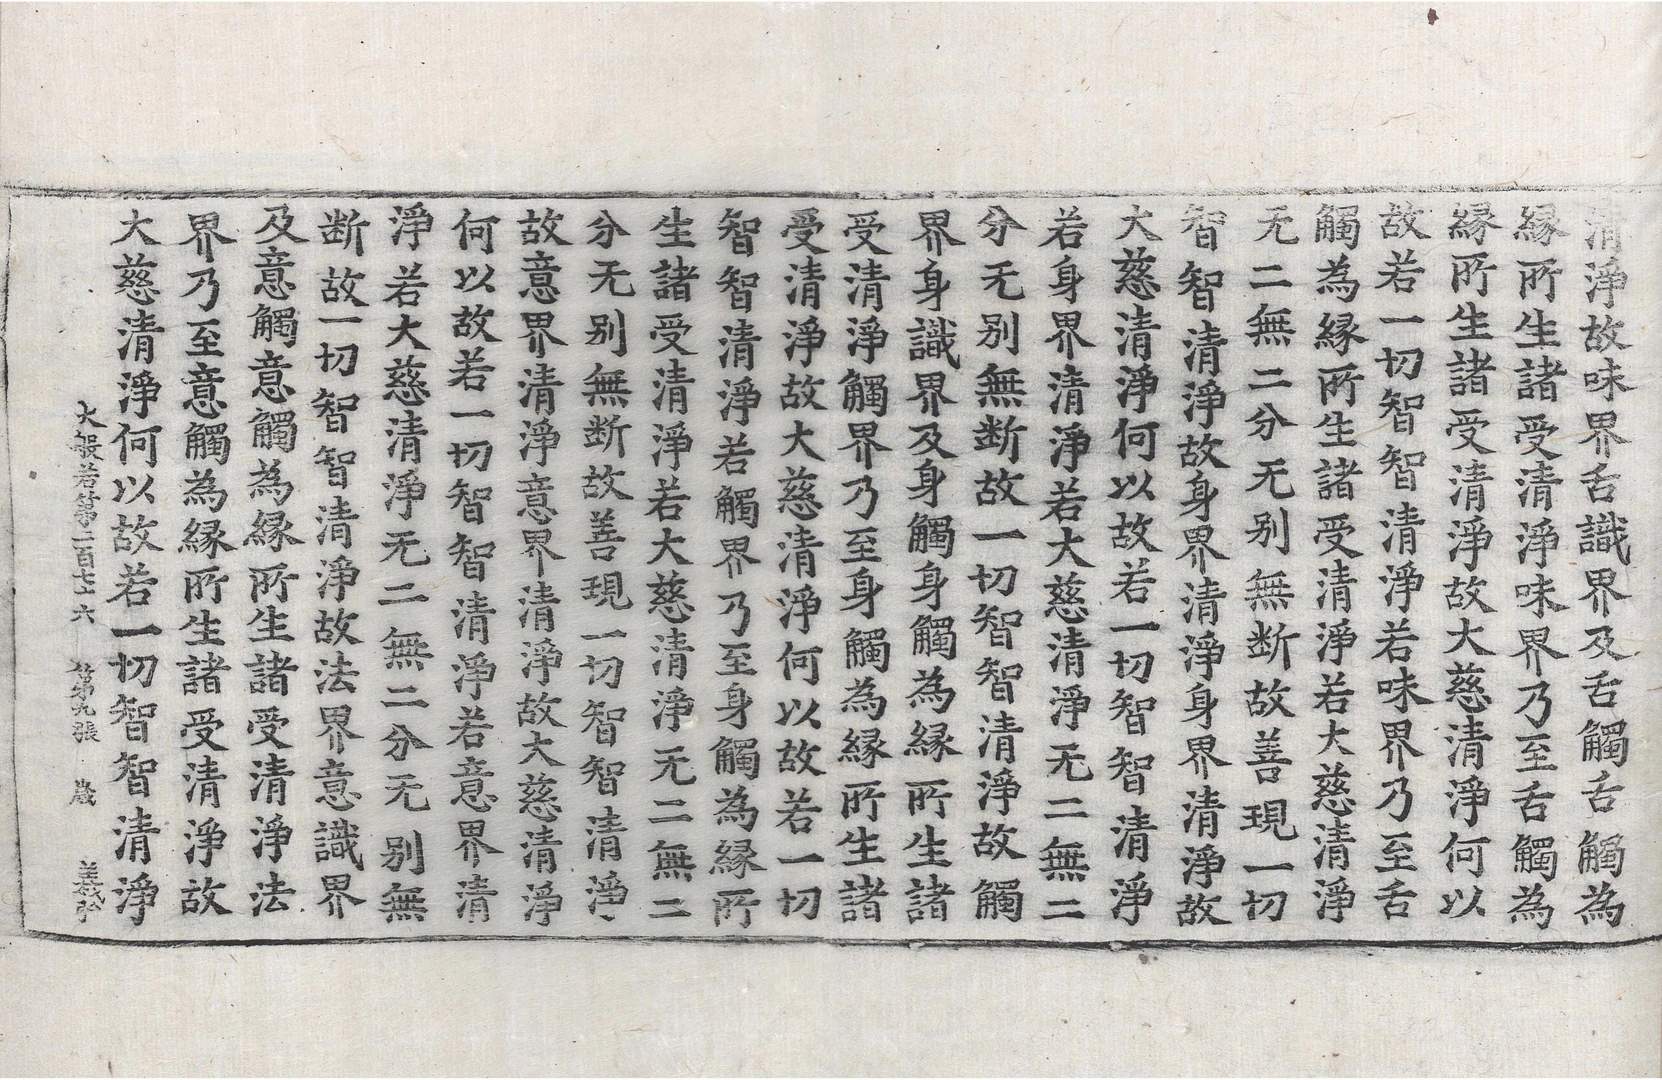 清淨故味界舌識界及舌觸舌觸為
縁所生諸受清淨味界乃至舌觸為
縁所生諸受清淨故大慈清淨何以
故若一切智智清淨若味界乃至舌
觸為縁所生諸受清淨若大慈清淨
无二無二分无别無断故善現一切
智智清淨故身界清淨身界清淨故
大慈清淨何以故若一切智智清淨
若身界清淨若大慈清淨无二無二
分无别無断故一切智智清淨故觸
界身識界及身觸身觸為縁所生諸
受清淨觸界乃至身觸為縁所生諸
受清淨故大慈清淨何以故若一切
智智清淨若觸界乃至身觸為縁所
生諸受清淨若大慈清淨无二無二
分无别無断故善現一切智智清淨
故意界清淨意界清淨故大慈清淨
何以故若一切智智清淨若意界清
淨若大慈清淨无二無二分无别無
断故一切智智清淨故法界意識界
及意觸意觸為縁所生諸受清淨法
界乃至意觸為縁所生諸受清淨故
大慈清淨何以故若一切智智清淨
大般若第二百七十六 第九張 歳